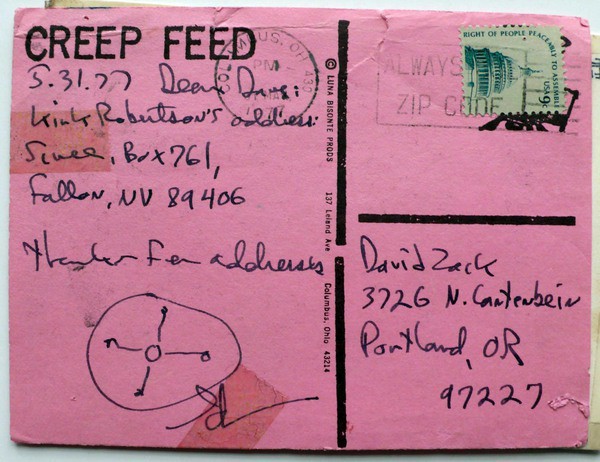 CREEP FEED
5.31.77 Dear Dave:
Kirk Robertson's address:
Scree, Box 761,
Fallon, NV 89406
Thanks for addresses
© LUNA BISONTE PRODS 137 Leland Ave Columbus, Ohio 43214
COLUMBUS, OH 432
PM
31 MAY
ALWAYS
ZIP CODE
RIGHT OF PEOPLE PEACEABLY TO ASSEMBLE
USA 9c
David Zack
3726 N. Gantenbein
Portland, OR
97227